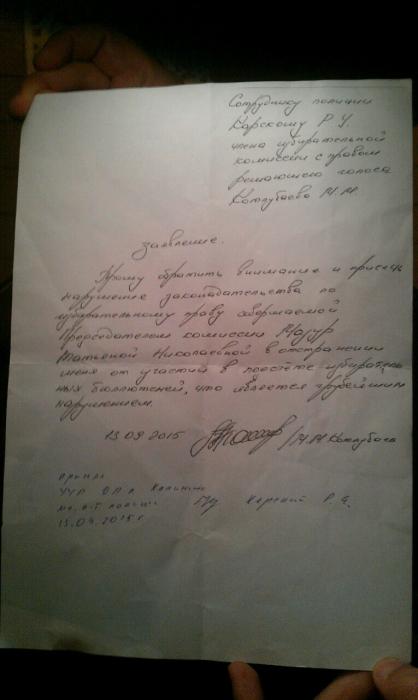 Сотруднику полиции
Карскому Р. У.
члена избирательной
комиссии с правом
решающего голоса
Котлубаева М.М.
Заявление.
Прошу обратить внимание и пресечь
нарушение законодательства по
избирательному праву совершаемой
Председателем комиссии Мазур
Татьяной Николаевной в отстранении
меня от участия в подсчёте избиратель
ных бюллетеней, что является грубейшим
нарушением.
13 09 2015 /М.М Котлубаев
Принял
УУП ОП
полиции Карский Р.
13.09.2015 г